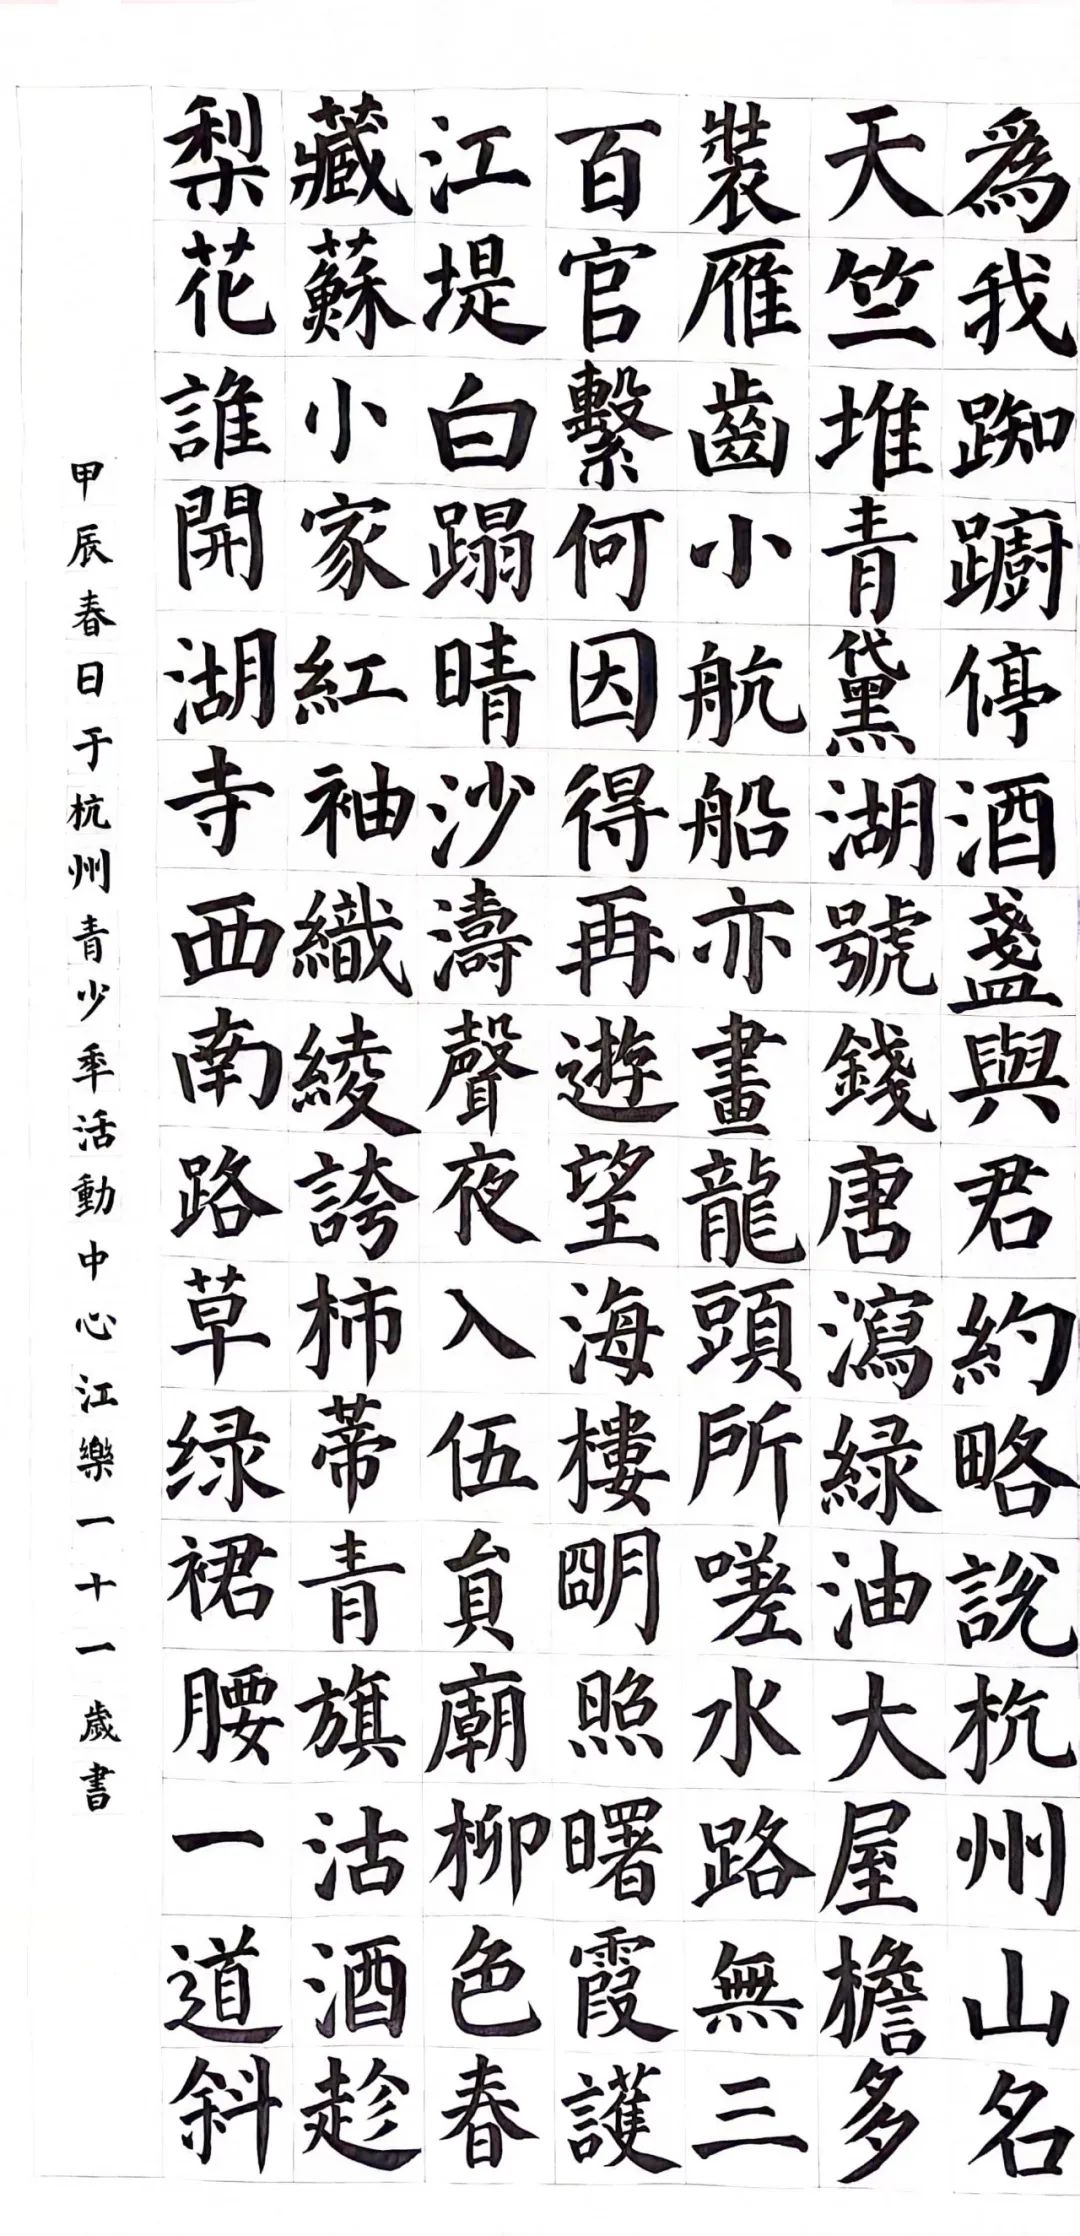 爲我踟躕停酒盞與君約略說杭州山名
天竺堆青黛湖號錢唐瀉緑油大屋檐多
裝雁齒小航船亦畫龍頭所嗟水路無三
百官繫何因得再遊望海樓朙照曙霞護
江堤白蹋晴沙濤聲夜入伍員廟柳色春
藏蘇小家紅袖織綾誇柿蒂青旗沽酒趁
梨花誰開湖寺西南路草绿裙腰一道斜
甲辰春日于杭州青少年活動中心江樂一十一歲書